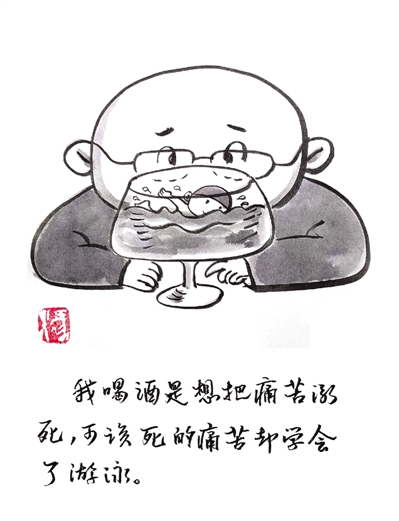 我喝酒是想把痛苦溺
死，可该死的痛苦却学会
了游泳。